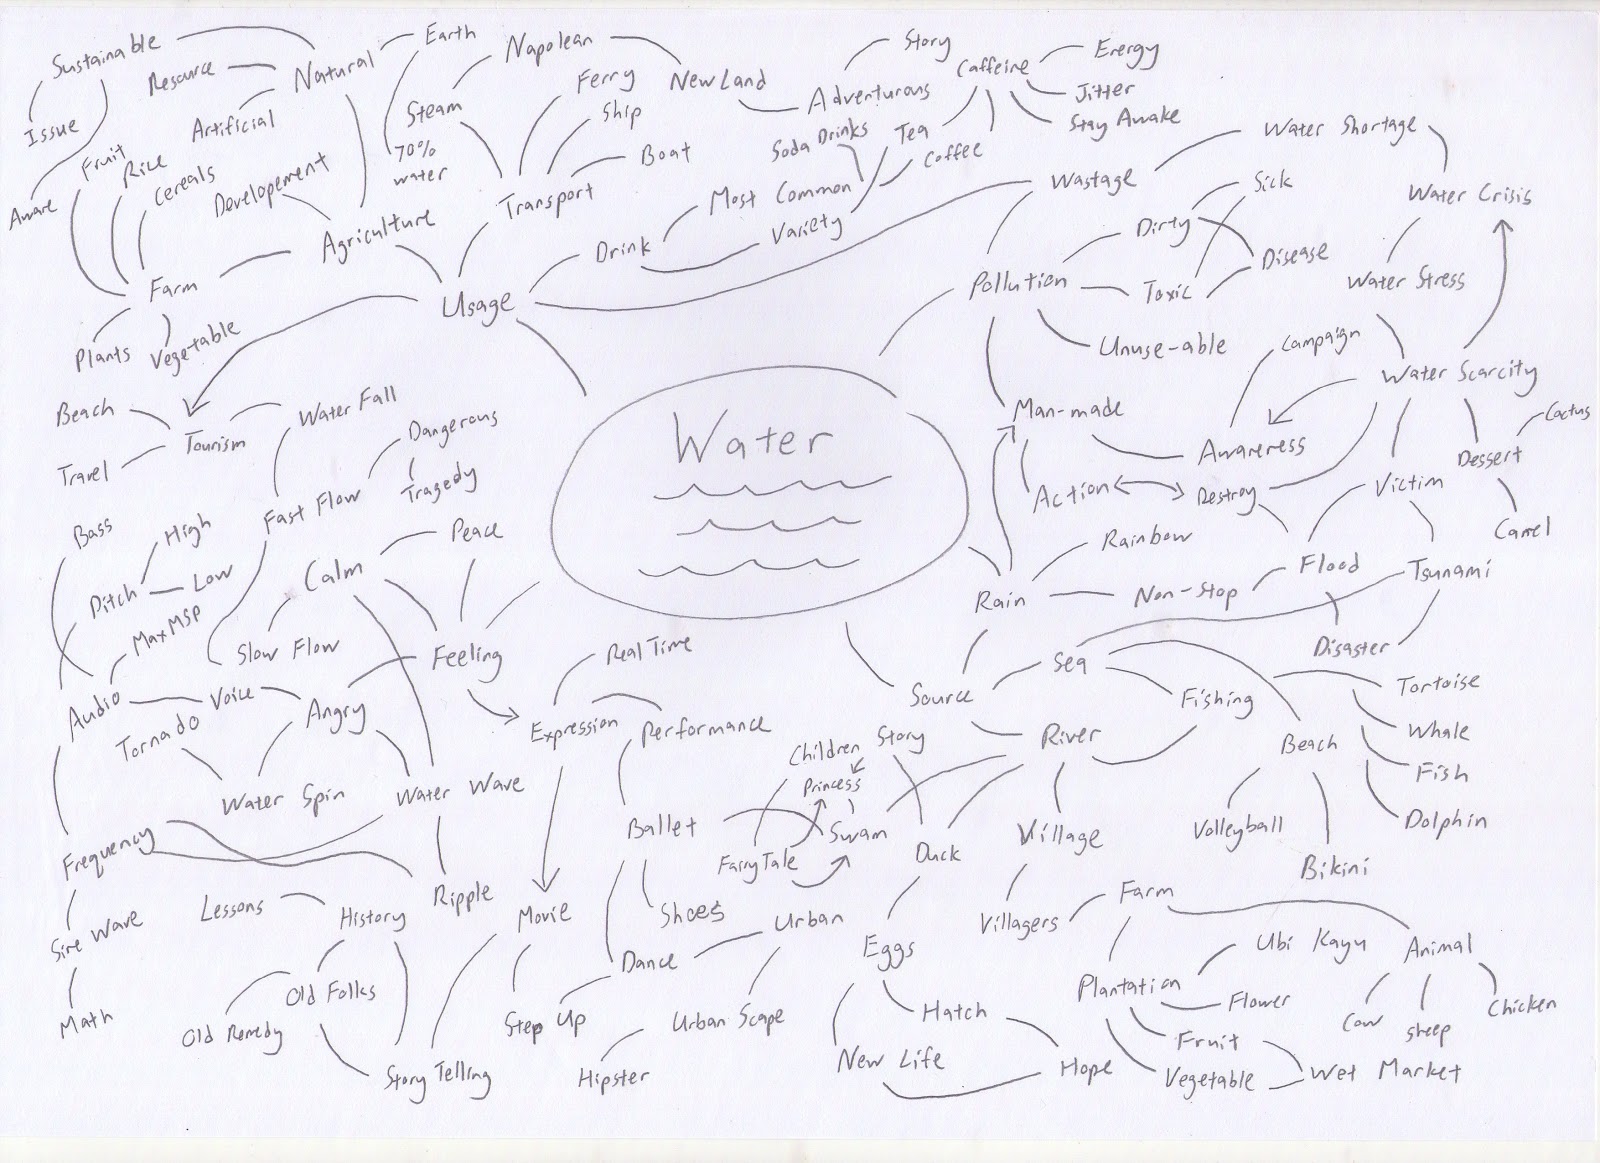 Sustainable
Issue
Aware
Resource
Natural
Earth
70%
water
Artificial
Developement
Fruit
Rice
Cereals
Farm
Plants
Vegetable
Agriculture
Usage
Steam
Napolean
New Land
Adventurous
Story
Transport
Ferry
Ship
Boat
Drink
Most Common
Variety
Soda Drinks
Tea
Coffee
Caffeine
Energy
Jitter
Stay Awake
Wastage
Water Shortage
Water Crisis
Water Stress
Water Scarcity
Pollution
Dirty
Sick
Toxic
Disease
Unuse-able
Man-made
Campaign
Awareness
Action
Destroy
Victim
Dessert
Cactus
Camel
Water
Tourism
Beach
Travel
Water Fall
Fast Flow
Dangerous
Tragedy
Bass
Pitch
High
Low
MaxMSP
Audio
Voice
Calm
Peace
Slow Flow
Feeling
Angry
Tornado
Water Spin
Water Wave
Frequency
Sine Wave
Math
Ripple
Lessons
History
Old Folks
Old Remedy
Story Telling
Expression
Real Time
Performance
Movie
Step Up
Ballet
Shoes
Dance
Urban
Urban Scape
Hipster
Rain
Rainbow
Non-stop
Flood
Tsunami
Disaster
Source
Sea
Fishing
Tortoise
Whale
Fish
Dolphin
Beach
Volleyball
Bikini
River
Children Story
Princess
Swam
FairyTale
Duck
Eggs
Hatch
New Life
Hope
Village
Villagers
Farm
Plantation
Ubi Kayu
Flower
Fruit
Vegetable
Wet Market
Animal
Cow
Sheep
Chicken